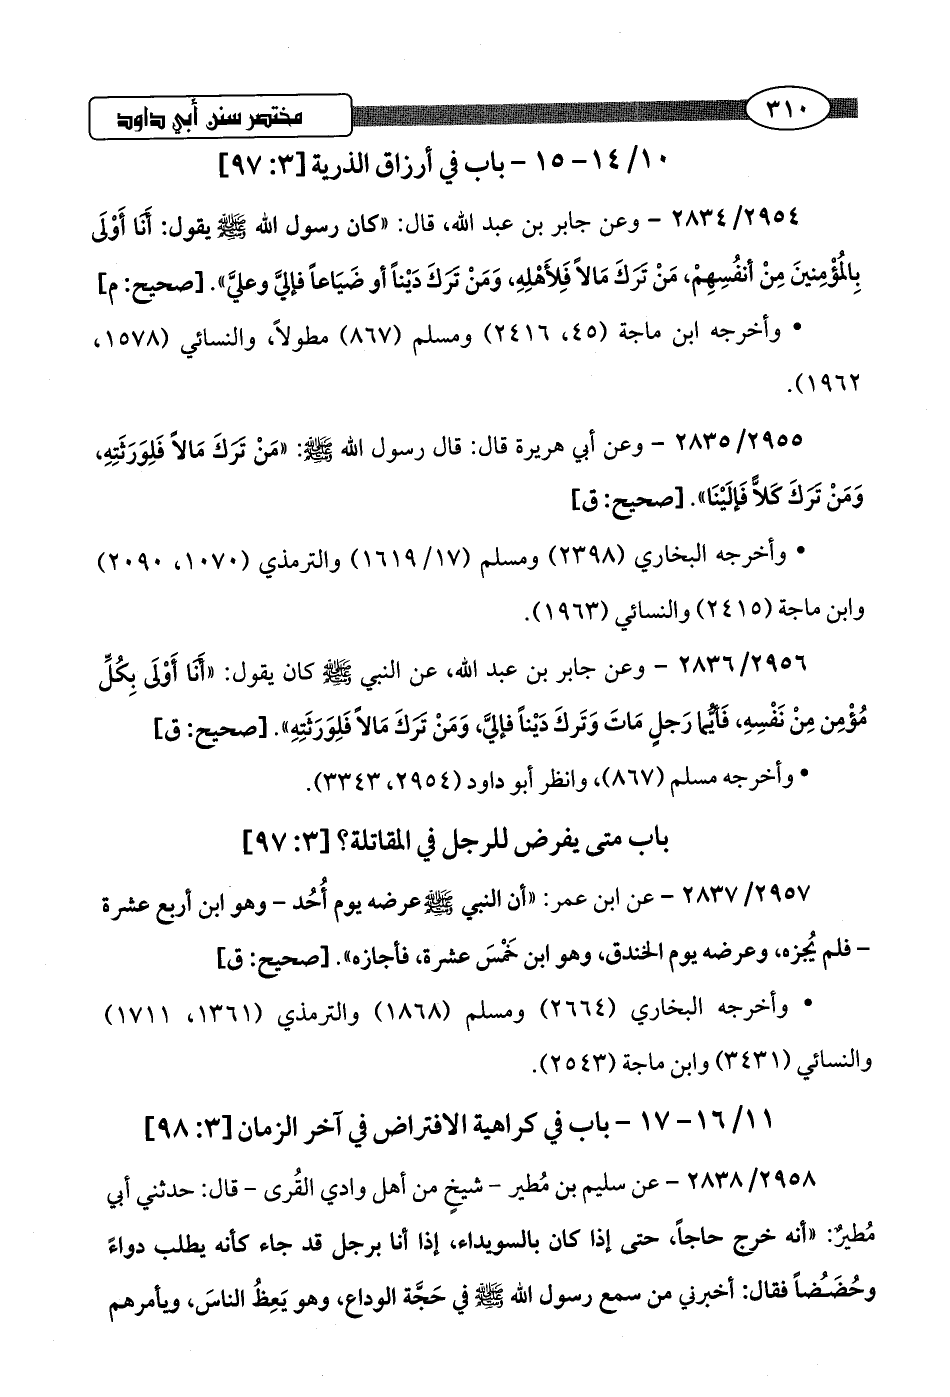 ٣١٠
مختصر سنن أبي داود
١٠/ ١٤- ١٥ - باب في أرزاق الذرية [٣: ٩٧]
٢٨٣٤/٢٩٥٤ - وعن جابر بن عبد الله، قال: «كان رسول الله ﷺ يقول: أَنَا أَوْلَى
بِالْمُؤْمِنِينَ مِنْ أنفُسِهِمْ، مَنْ تَرَكَ مَالاً فَلِأَهْلِهِ، وَمَنْ تَرَكَ دَيْناً أو ضَيَاعاً فإليَّ وعليَّ». [صحيح: م]
• وأخرجه ابن ماجة (٤٥، ٢٤١٦) ومسلم (٨٦٧) مطولاً، والنسائي (١٥٧٨،
١٩٦٢).
٢٨٣٥/٢٩٥٥ - وعن أبي هريرة قال: قال رسول الله ﷺ: «مَنْ تَرَكَ مَالاً فَلِوَرَثَتِهِ،
وَمَنْ تَرَكَ كَلاًّ فَإِلَيْنَا». [صحيح: ق]
• وأخرجه البخاري (٢٣٩٨) ومسلم (١٧/ ١٦١٩) والترمذي (١٠٧٠، ٢٠٩٠)
وابن ماجة (٢٤١٥) والنسائي (١٩٦٣).
٢٨٣٦/٢٩٥٦ - وعن جابر بن عبد الله، عن النبي ﷺ كان يقول: «أَنَا أَوْلَى بِكُلِّ
مُؤْمِن مِنْ نَفْسِهِ، فَأَيُّما رَجلٍ مَاتَ وَتَركَ دَيْناً فإليَّ، وَمَنْ تَرَكَ مَالاً فَلِوَرَثَتِهِ». [صحيح: ق]
• وأخرجه مسلم (٨٦٧)، وانظر أبو داود (٢٩٥٤، ٣٣٤٣).
باب متى يفرض للرجل في المقاتلة؟ [٣: ٩٧]
٢٨٣٧/٢٩٥٧ - عن ابن عمر: «أن النبي ﷺ عرضه يوم أُحُد - وهو ابن أربع عشرة
- فلم يُجزه، وعرضه يوم الخندق، وهو ابن خَمْسَ عشرة، فأجازه». [صحيح: ق]
• وأخرجه البخاري (٢٦٦٤) ومسلم (١٨٦٨) والترمذي (١٣٦١، ١٧١١)
والنسائي (٣٤٣١) وابن ماجة (٢٥٤٣).
١١/ ١٦- ١٧ - باب في كراهية الافتراض في آخر الزمان [٣: ٩٨]
٢٨٣٨/٢٩٥٨ - عن سليم بن مُطير - شيخٍ من أهل وادي القُرى - قال: حدثني أبي
مُطيرٌ: «أنه خرج حاجاً، حتى إذا كان بالسويداء، إذا أنا برجل قد جاء كأنه يطلب دواءً
وحُضَضاً فقال: أخبرني من سمع رسول الله ﷺ في حَجَّة الوداع، وهو يَعِظُ الناسَ، ويأمرهم